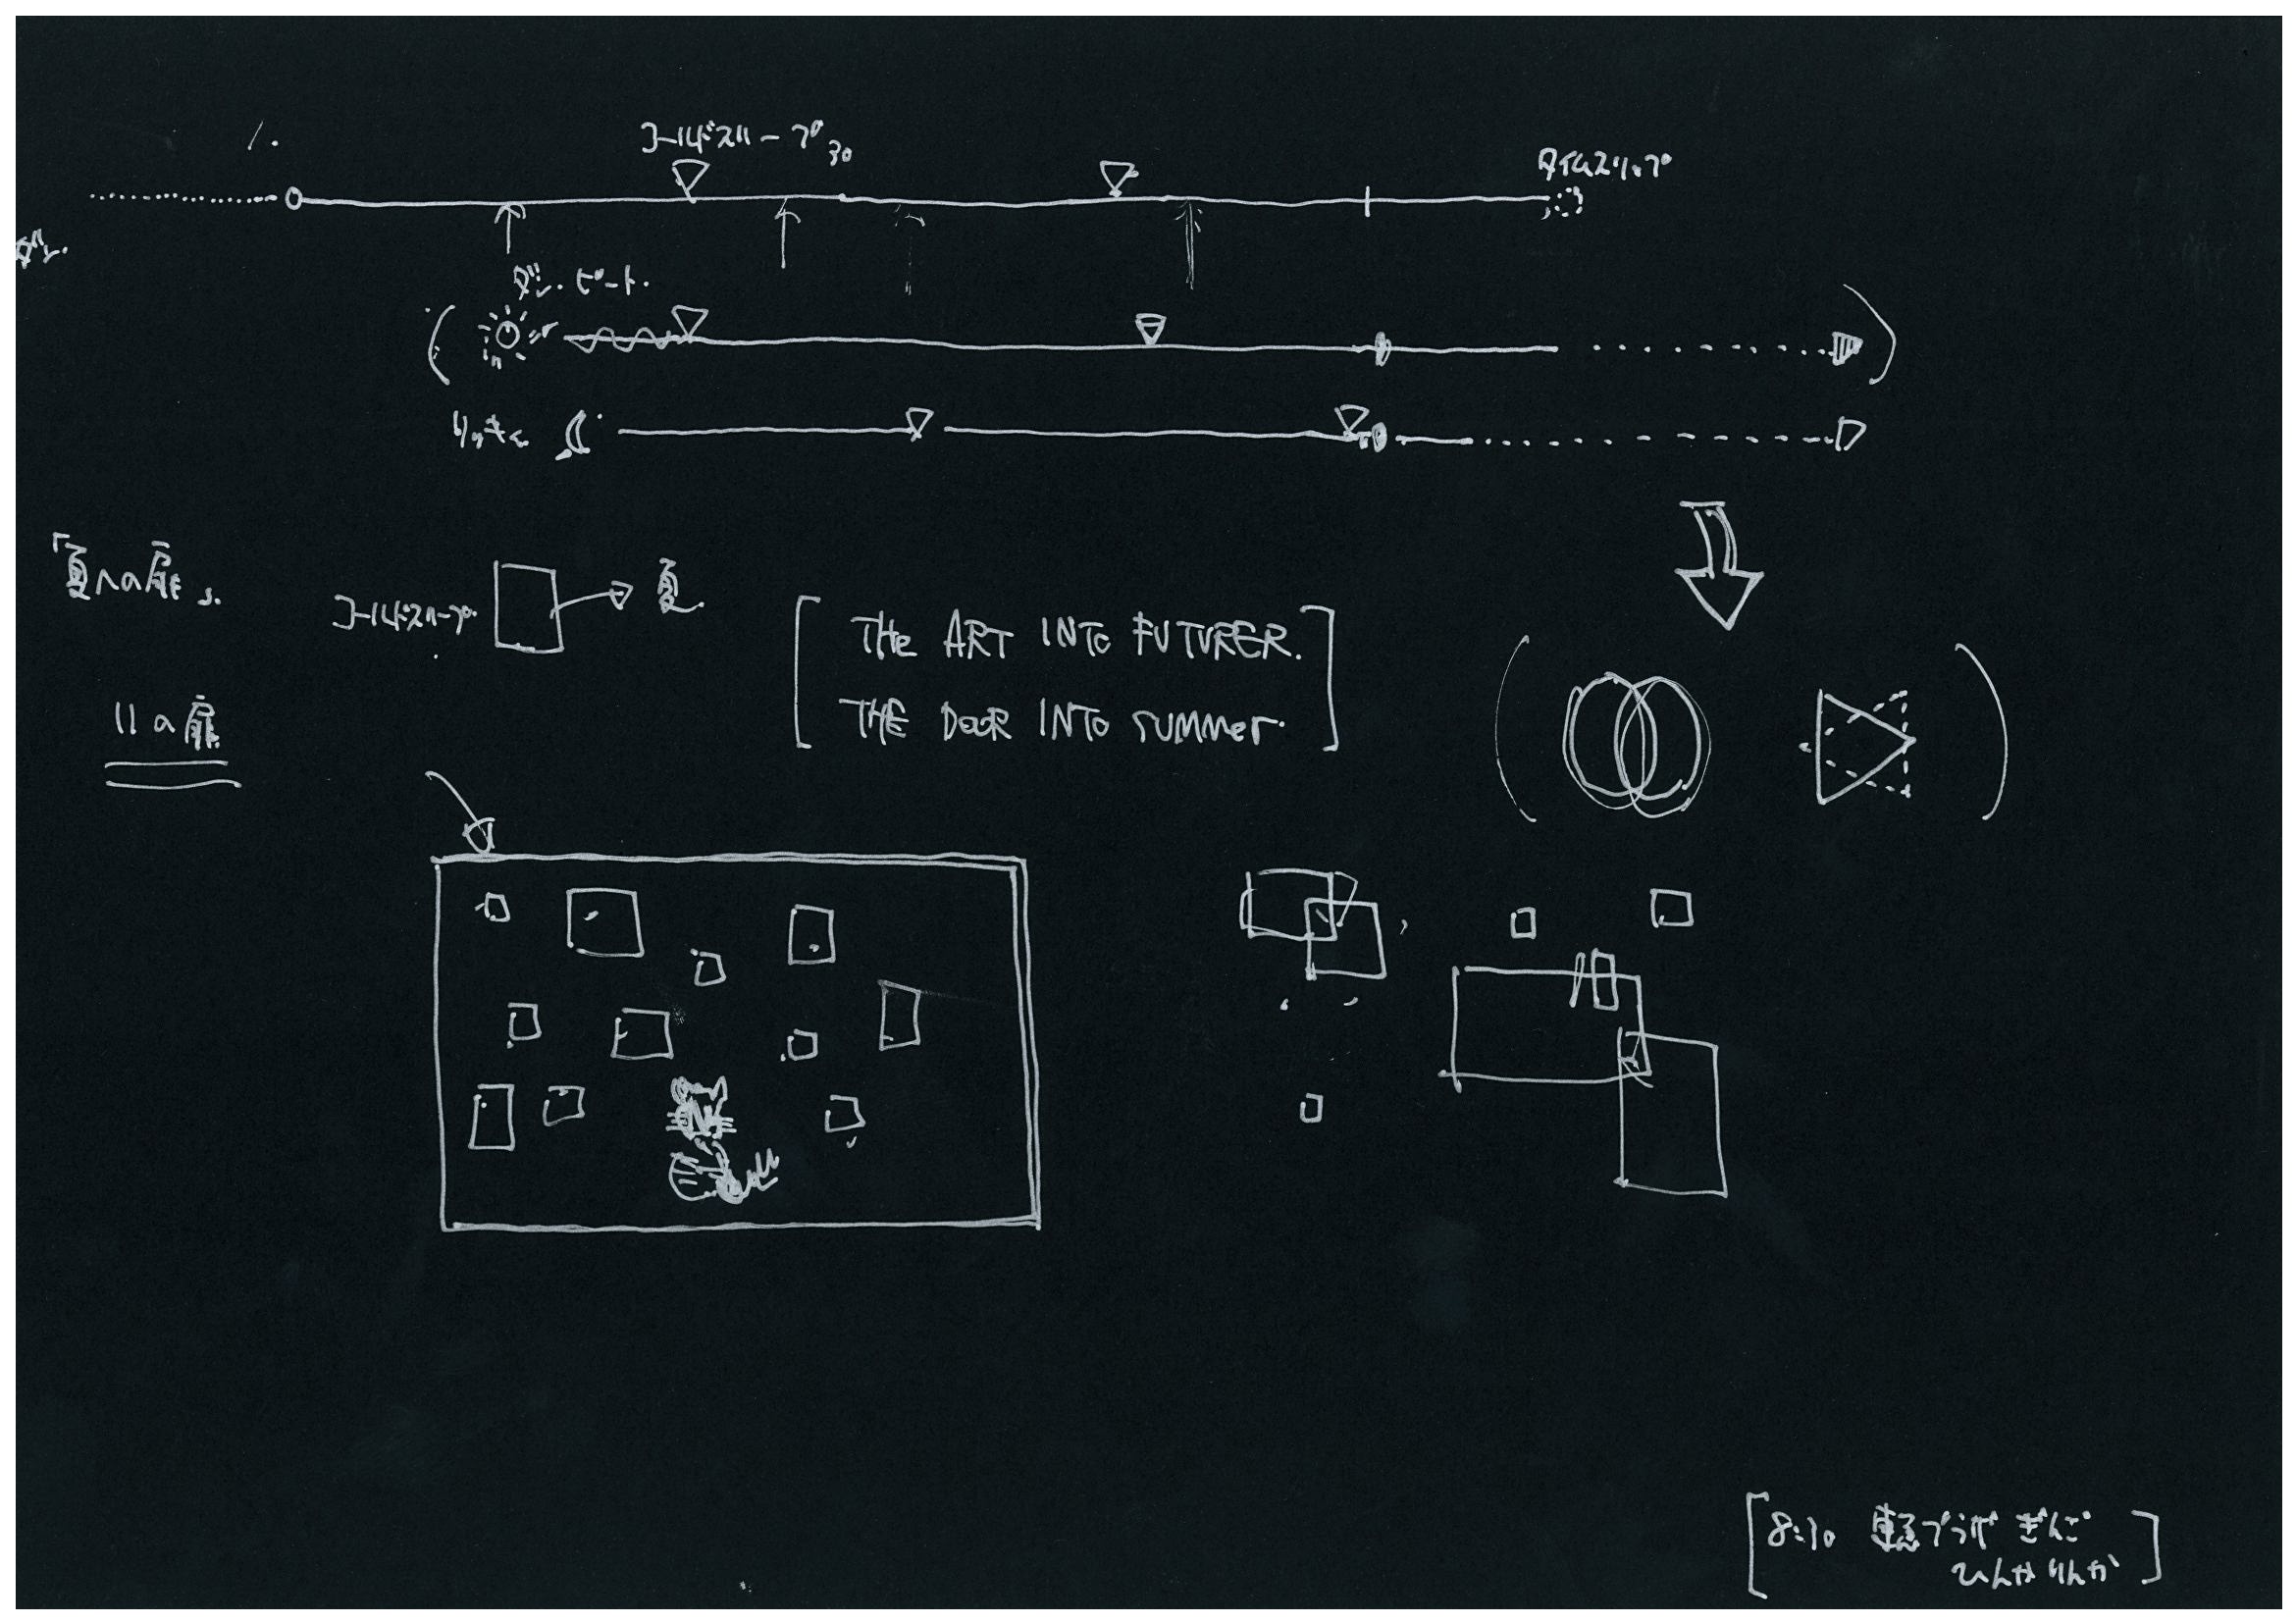 1.
コールドスリープ 30
タイムスリップ
ダン.
ダン.ピート.
リッキィ
「夏への扉」.
コールドスリープ.
夏.
THE ART INTO FUTURER.
THE DOOR INTO SUMMER.
11の扉
8:30 東急プラザ ぎんざ